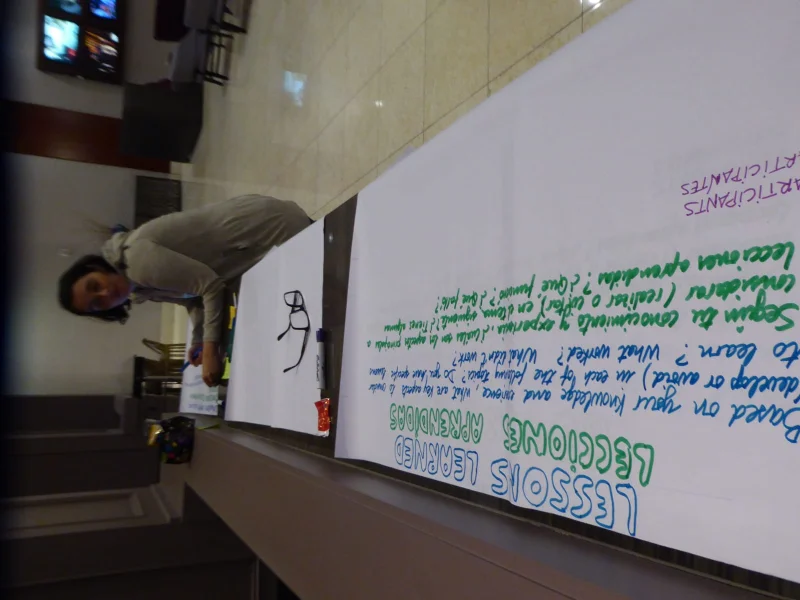 LESSONS LEARNED
LECCIONES APRENDIDAS
Based on your knowledge and experience what are key aspects to consider
(develop or avoid) in each of the following topics? Do you have specific lessons
to learn? What worked? What didn't work?
Según tu conocimiento y experiencia ¿Cuáles son los aspectos principales a
considerar (realizar o evitar), en el tema siguiente? ¿Tienes algunas
lecciones aprendidas? ¿Qué funcionó? ¿Qué falló?
ARTICIPANTS
ARTICIPANTES